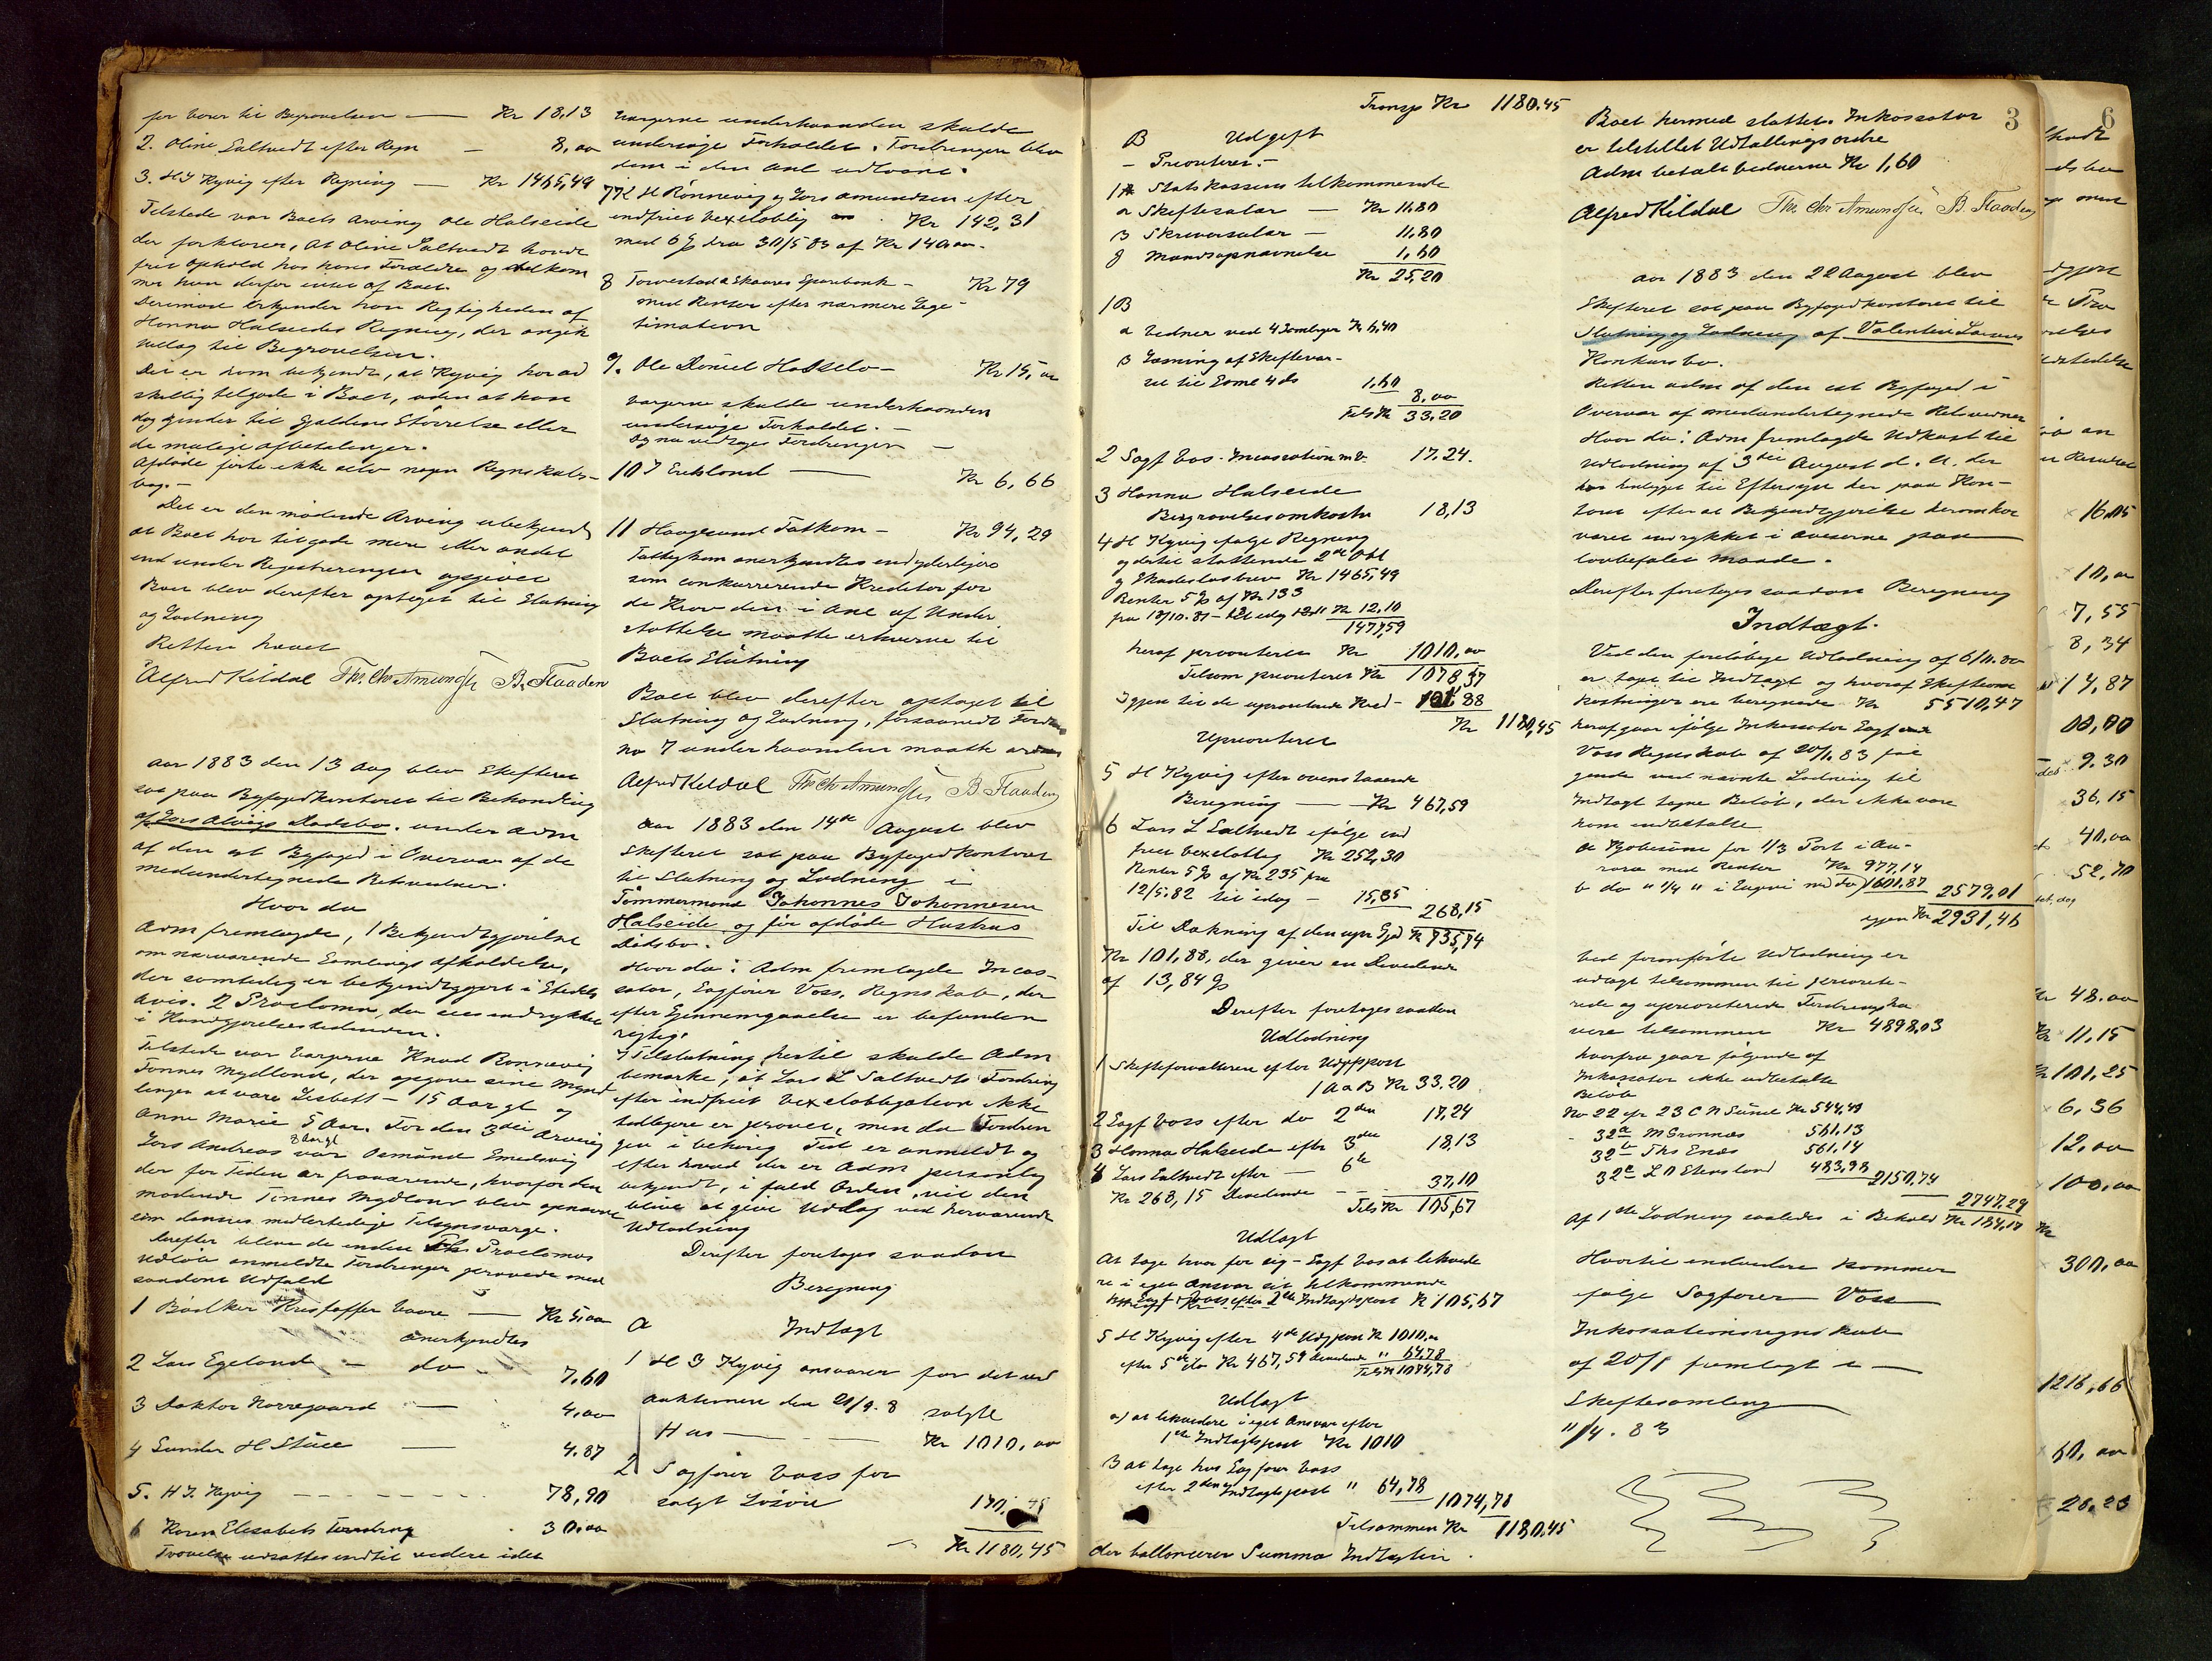 for varer til Begravelsen — Kr 18,13
2. Oline Saltvedt efter Regn — 8,00
3. H I Kyvig efter Regning — Kr 1465,49
Tilstede var Boets Arving Ole Halseide
der forklarer, at Oline Saltvedt havde
frit Ophold hos hans Forældre og tilkom
mer hun derfor intet af Boet.
Derimod erkjender han Rigtigheden af
Hanna Halseides Regning, der angik
Udlæg til Begravelsen.
Det er ham bekjendt, at Kyvig havde
tilgode i Boet, uden at han
dog kjender til Gjældens Størrelse eller
de mulige Afbetalinger.
Afdøde førte ikke selv nogen Regnskabs-
bog. —
Det er den mødende Arving ubekjendt
at Boet har tilgode mere eller andet
end under Registreringen opgivet
Boet blev derefter optaget til Slutning
og Lodning
Retten hævet
Alfred Kildal Ths. Chr Amundsen B. Flaaden
Aar 1883 den 13 Aug blev Skifteret
sat paa Byfogedkontoret til Behandling
af Lars Alvigs Dødsbo. under Adm
af den cst Byfoged i Overvær af de
medundertegnede Retsvidner.
Hvor da
Adm fremlagde, 1 Bekjendtgjørelse
om nærværende Samlings Afholdelse,
der samtidig er bekjendtgjort i Stedets
Avis. 2 Proclama, der sees indrykket
i Kundgjørelsestidenden.
Tilstede var Vargerne Knud Rønnevig
Tønnes Mydland, der opgave sine Mynd
linger at være Lisbeth — 15 Aar gl og
Anne Marie 5 Aar. For den 3die Arving
Lars Andreas 8 Aar gl var Osmund Emedsvig
der for Tiden er fraværende, hvorfor den
mødende Tønnes Mydland blev opnævnt
som dennes midlertidige Tilsynsværge.
Derefter bleve de inden Proclamas
Udløb anmeldte Fordringer prøvede med
saadant Udfald
1 Bødker Kristoffer Vaare — Kr 5,00
anerkjendtes
2 Lars Egeland — do — 7,60
3 Doktor Nørregaard — 4,00
4 Sunder H Stüee — 4.87
5. H I. Kyvig — 78,90
6 Karen Elisabeth Fordring 30,00
Prøvelse udsættes indtil videre idet
Vargerne underhaanden skulde
undersøge Forholdet. Fordringen blev
dem i den Anl udlaant.
7 K H Rønnevig og Lars Amundsen efter
indfriet Vexeloblig Kr 142,31
med 6 % fra 30/5 83 af Kr 140,00.
8 Torvestad & Skaares Sparebank — Kr 79
med Renter efter nærmere Legi-
timation
9. Ole Daniel Hasselø — Kr 15,00
Vargerne skulde underhaanden
undersøge Forholdet. —
Ogsaa vedtoges Fordringen —
10 I Eriksland — Kr 6,66
11 Haugesund Fatkom — Kr 94,29
Fattigkom anerkjendtes endyderligere
som conkurrerende Kreditor for
de Krav den i Anl af Under
støttelse maatte erhverve til
Boets Slutning
Boet blev derefter optaget til
Slutning og Lodning, forsaavidt Fordr
No 7 underhaanden maatte
Alfred Kildal Ths Chr Amundsen B Flaaden
Aar 1883 den 14de August blev
Skifteret sat paa Byfogedkontoret
til Slutning og Lodning i
Tømmermand Johannes Johannesen
Halseide og før afdøde Hustrus
Dødsbo.
Hvor da: Adm fremlagde Incas-
sator, Sagfører Voss, Regnskab, der
efter Gjennemgaaelse er befunden
rigtig.
I Tilslutning hertil skulde Adm
bemærke, at Lars L Saltvedts Fordring
efter indfriet Vexelobligation ikke
tidligere er prøvet, men da Fordrin
gen i behørig Tid er anmeldt og
efter hvad der er Adm personlig
bekjendt, i fuld Orden, vil den
blive at give Udlæg ved nærværende
Udlodning
Derefter foretoges saadan
Beregning
A Indtægt
1 H I Kyvig ansvarer for det ved
Auktionen den 21/9. 8 solgte
Hus — Kr 1010,00
2 Sagfører Voss for
solgt Løsøre 170.45
Kr 1180,45
Transp Kr 1180.45
B Udgift
– Prioriteret. –
1A Statskassens tilkommende
a Skiftesalær — Kr 11,80
B Skriversalær — 11,80
g Mandsopnævnelse 1,60
Kr 25,20
1B
a Vidner ved 4 Samlinger Kr 6,40
B Læsning af Skiftevar-
sel til Samme 4 ds 1,60
8,00
Tils Kr 33,20
2 Sagf Voss. Incassation m.v. 17.24.
3 Hanna Halseide
Begravelsesomkostn 18,13
4 H Kyvig ifølge Regning
og dertil støttende 2de Obl
og Skadesløsbrev Kr 1465,49
Renter 5 % af Kr 133
fra 18/10.81 — til idag Kr 12.10
1477,59
heraf prioriteret Kr 1010,00
Tilsam prioriteret Kr 1078,57
Igjen til de uprioriterede Kred — 101,88
Kr 1180,45
Uprioriteret
5 H Kyvig efter ovenstaaende
Beregning — Kr 467,59
6 Lars L Saltvedt ifølge ind
friet Vexeloblig Kr 252,30
Renter 5 % af Kr 235 fra
12/5.82 til idag — 15,85
268,15
Til Dækning af den upr Gjd Kr 735,74
Kr 101,88, der giver en Devidende
af 13,84 %
Derefter foretoges saadan
Udlodning
1 Skifteforvalteren efter Udgpost
1 A a B Kr 33.20
2 Sagf Voss efter do 2den 17,24
3 Hanna Halseide efter 3die 18,13
4 Lars Saltvedt efter — 6te
Kr 268,15 Devidende — 37,10
Tils Kr 105,67
Udlagt
At tage hver for sig — Sagf Voss at likvide
re i eget Ansvar sit tilkommende
Voss efter 2de Indtægtspost Kr 105,67
5 H Kyvig efter 4de Udgpost Kr 1010,00
efter 5te do Kr 467,59 Devidende " 64,78
Tils Kr 1074,78
Udlagt
a) at likvidere i eget Ansvar efter
1ste Indtægtspost Kr 1010
B at tage hos Sagfører Voss
efter 2den Indtægtspost " 64,78
1074,78
Tilsammen Kr 1180.45
der ballancerer Summa Indtægten.
3
Boet hermed sluttet. Inkassator
er tilstillet Udtallingsordre
Adm betalte Vidnerne Kr 1,60
Alfred Kildal Ths. Chr Amundsen B. Flaaden
Aar 1883 den 22 August blev
Skifteret sat paa Byfogedkontoret til
Slutning og Lodning af Valentinsens
Konkursbo.
Retten adm af den cst Byfoged i
Overvær af medundertegnede Retsvidner
Hvor da: Adm fremlagde Udkast til
Udlodning af 3die August d. A. der
har henligget til Eftersyn her paa Kon-
toret efter at Bekjendtgjørelse derom har
været indrykket i Aviserne paa
lovbefalet Maade.
Derefter foretoges saadan Beregning
Indtægt.
Ved den foreløbige Udlodning af 6/11.80
er tage til Indtægt og hvoraf Skifteom
kostninger ere beregnede Kr 5510,47
heraf gaar ifølge Inkassator Sagf
Voss Regnskab af 20/1.83 føl
gende ved nævnte Lodning til
Indtægt tagne Beløb, der ikke vare
ham indbetalte
a Kjøbesum for 1/3 Part i Au-
rora med Renter Kr 977,14
b do " 1/4 " i Engvi m do 1601.87 2579,01
igjen Kr 2931,46
Ved fornførte Udlodning er
udlagt tilsammen til priorite-
rede og uprioriterede Fordringsha
vere tilsammen Kr 4898,03
hvorfra gaar følgende af
Inkassator ikke udbetalte
Beløb
No 22 cfr 23 C N Sünd Kr 544,49
32a M Grønnæs 561,13
32b Ths Enæs 561,14
32c L O Ekrisland 483,98
2150,74
2747,29
Af 1ste Lodning saaledes i Behold Kr 184,17
Hvortil endvidere kommer
ifølge Sagfører Voss
Inkassationsregnskab
af 20/1 fremlagt i —
Skiftesamling —
11/4. 83
6
16,05
10,00
7,55
8,34
14,87
00,00
9.30
36,15
40,00
52,70
48.00
11,15
101,25
6,36
12,00
100,00
300,00
1216,66
60,00
28,23